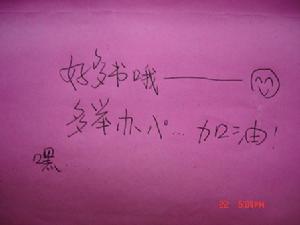 好多书哦——
多举办心… 加油！
嘿
22 5:01PM